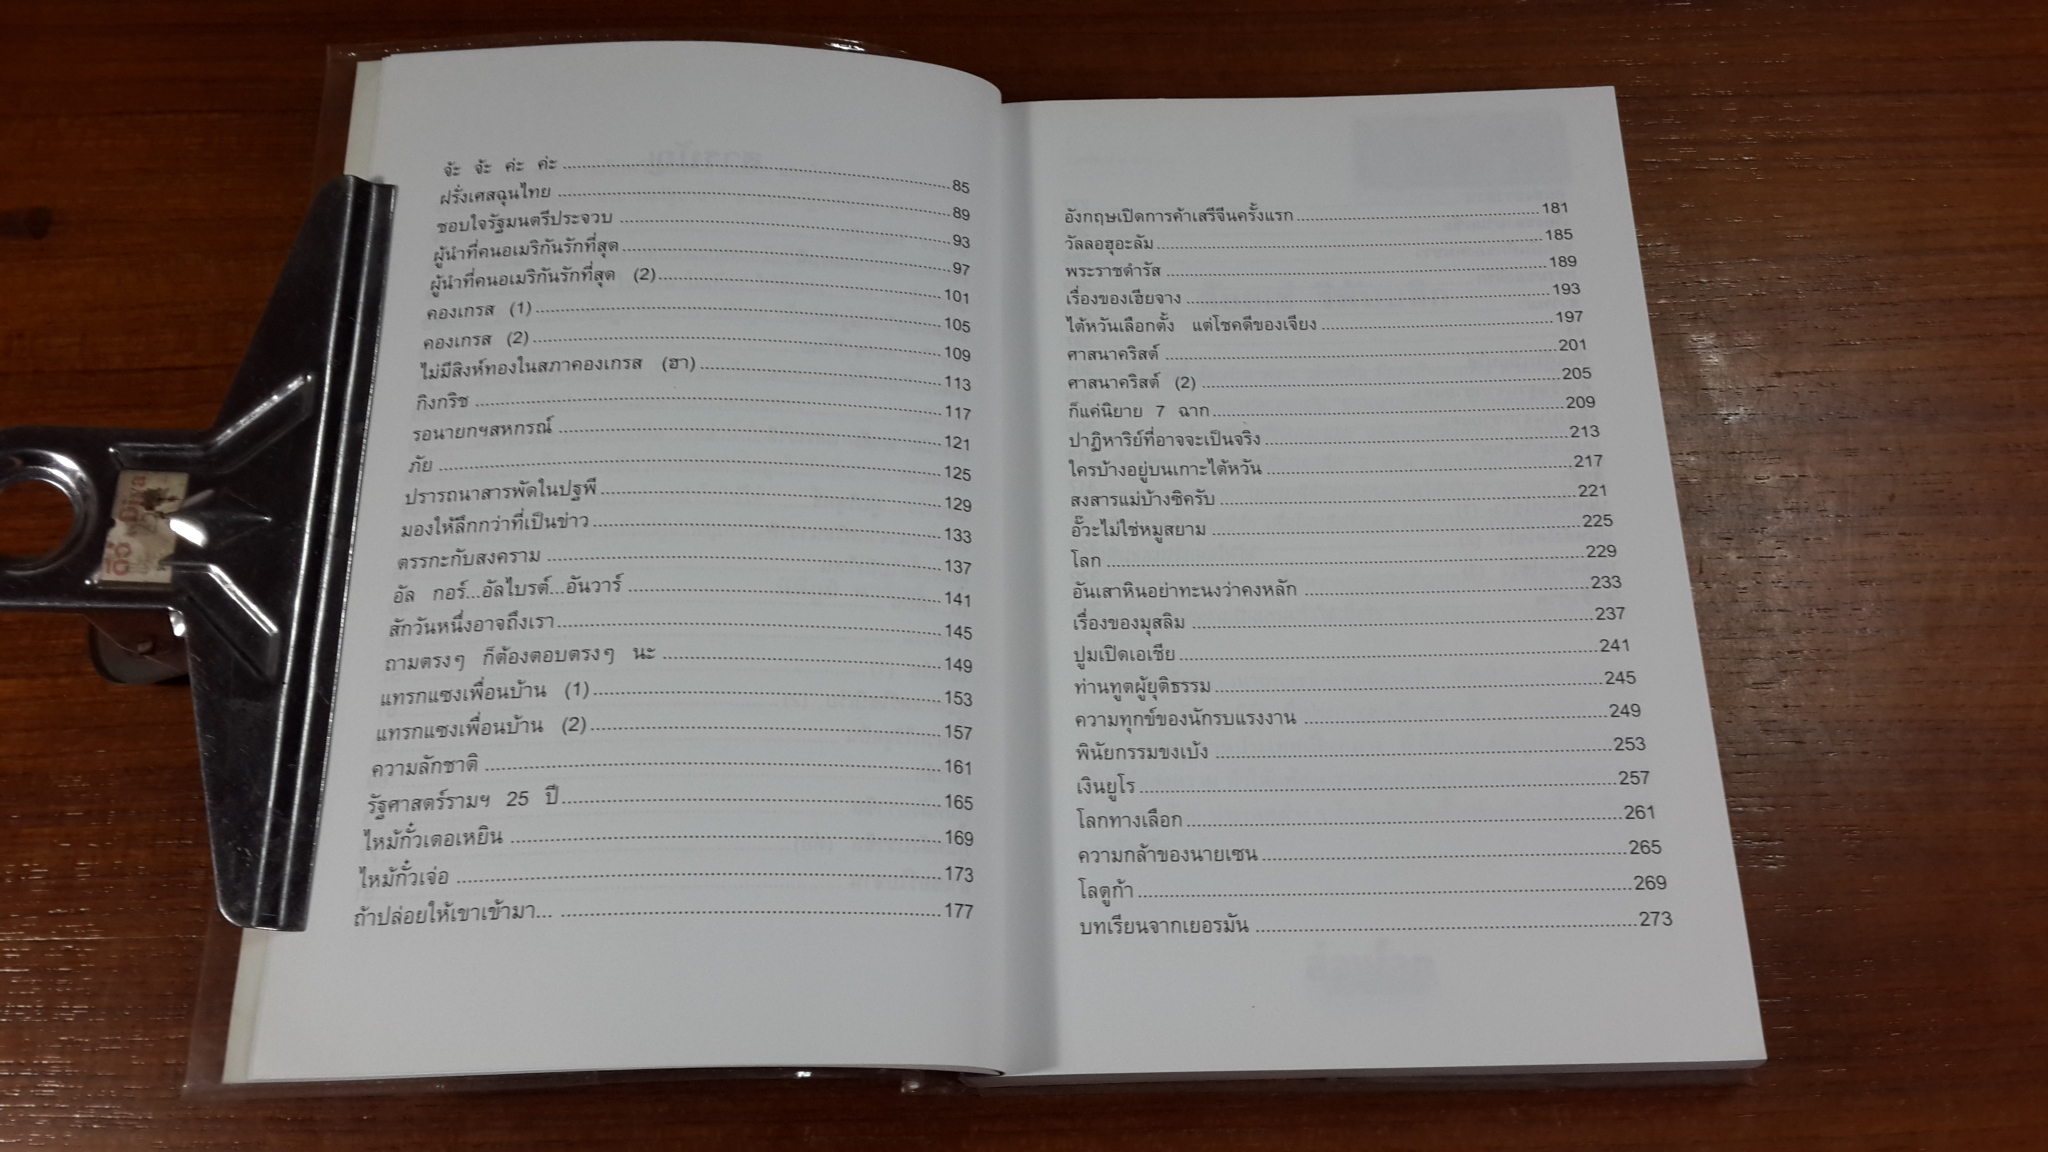 จ้ะ จ้ะ ค่ะ ค่ะ ........ 85
ฝรั่งเศสฉุนไทย ........ 89
ชอบใจรัฐมนตรีประจวบ ........ 93
ผู้นำที่คนอเมริกันรักที่สุด ........ 97
ผู้นำที่คนอเมริกันรักที่สุด (2) ........ 101
คองเกรส (1) ........ 105
คองเกรส (2) ........ 109
ไม่มีสิงห์ทองในสภาคองเกรส (ฮา) ........ 113
กิงกริช ........ 117
รอนายกฯสหกรณ์ ........ 121
ภัย ........ 125
ปรารถนาสารพัดในปฐพี ........ 129
มองให้ลึกกว่าที่เป็นข่าว ........ 133
ตรรกะกับสงคราม ........ 137
อัล กอร์...อัลไบรต์...อันวาร์ ........ 141
สักวันหนึ่งอาจถึงเรา ........ 145
ถามตรงๆ ก็ต้องตอบตรงๆ นะ ........ 149
แทรกแซงเพื่อนบ้าน (1) ........ 153
แทรกแซงเพื่อนบ้าน (2) ........ 157
ความลักชาติ ........ 161
รัฐศาสตร์รามฯ 25 ปี ........ 165
ไหมักั๋วเตอเหยิน ........ 169
ไหมักั๋วเจ่อ ........ 173
ถ้าปล่อยให้เขาเข้ามา... ........ 177
อังกฤษเปิดการค้าเสรีจีนครั้งแรก ........ 181
วัลลอฮุอะลัม ........ 185
พระราชดำรัส ........ 189
เรื่องของเฮียจาง ........ 193
ไต้หวันเลือกตั้ง แต่โชคดีของเจียง ........ 197
ศาสนาคริสต์ ........ 201
ศาสนาคริสต์ (2) ........ 205
ก็แค่นิยาย 7 ฉาก ........ 209
ปาฏิหาริย์ที่อาจจะเป็นจริง ........ 213
ใครบ้างอยู่บนเกาะไต้หวัน ........ 217
สงสารแม่บ้างซิครับ ........ 221
อั๊วะไม่ใช่หมูสยาม ........ 225
โลก ........ 229
อันเสาหินอย่าทะนงว่าคงหลัก ........ 233
เรื่องของมุสลิม ........ 237
ปูมเปิดเอเชีย ........ 241
ท่านทูตผู้ยุติธรรม ........ 245
ความทุกข์ของนักรบแรงงาน ........ 249
พินัยกรรมขงเบ้ง ........ 253
เงินยูโร ........ 257
โลกทางเลือก ........ 261
ความกล้าของนายเซน ........ 265
โลตูก้า ........ 269
บทเรียนจากเยอรมัน ........ 273